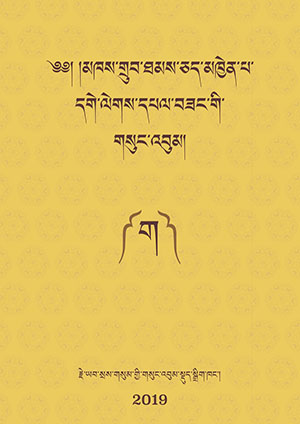 ༄༅། །མཁས་གྲུབ་ཐམས་ཅད་མཁྱེན་པ་
དགེ་ལེགས་དཔལ་བཟང་གི་
གསུང་འབུམ།
༼ ག ༽
རྗེ་ཡབ་སྲས་གསུམ་གྱི་གསུང་འབུམ་སྡུད་སྒྲིག་ཁང་།
2019